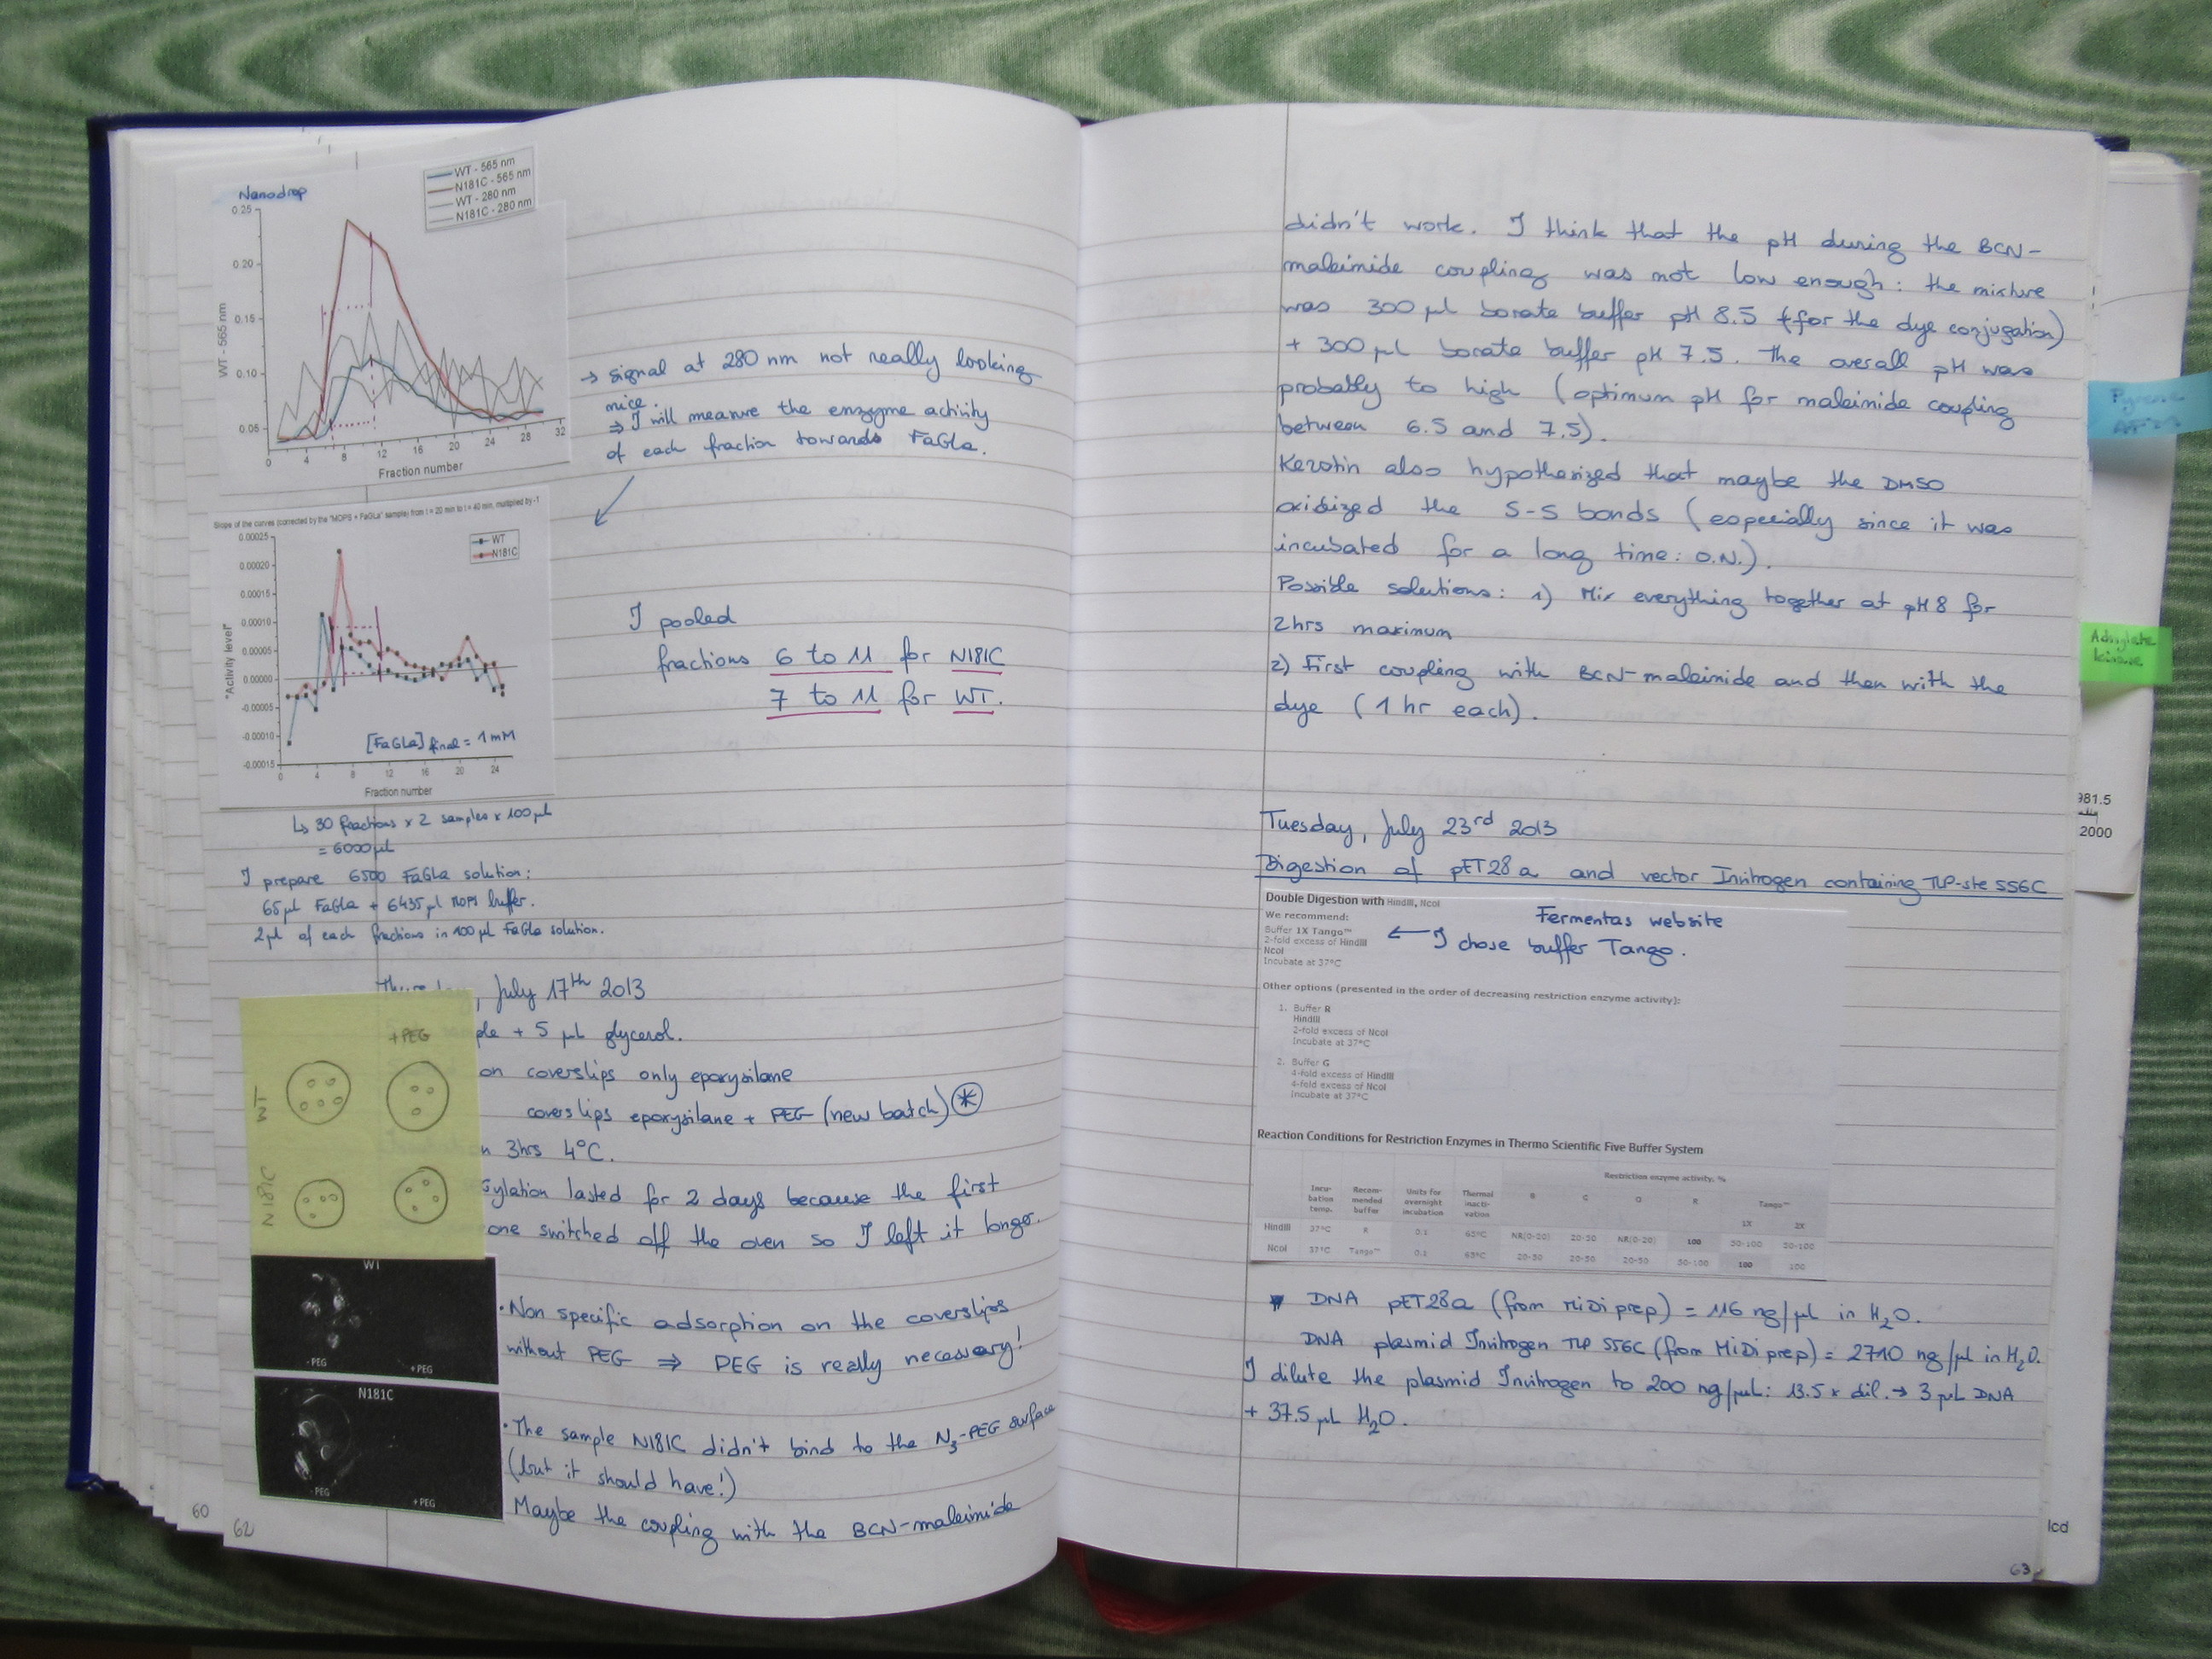 Nanodrop
WT - 565 nm
N181C - 565 nm
WT - 280 nm
N181C - 280 nm
0.25
0.20
0.15
0.10
0.05
WT - 565 nm
0 4 8 12 16 20 24 28 32
Fraction number
→ signal at 280 nm not really looking
nice.
⇒ I will measure the enzyme activity
of each fraction towards FaGla.
Slope of the curves (corrected by the "MOPS + FaGLa" sample) from t = 20 min to t = 40 min, multiplied by -1
WT
N181C
0.00025
0.00020
0.00015
0.00010
0.00005
0.00000
-0.00005
-0.00010
-0.00015
"Activity level"
[FaGLa] final = 1 mM
0 4 8 12 16 20 24
Fraction number
I pooled
fractions 6 to 11 for N181C
7 to 11 for WT.
↳ 30 fractions x 2 samples x 100 µl
= 6000 µl
I prepare 6500 FaGla solution:
65 µl FaGla + 6435 µl MOPS buffer.
2 µl of each fractions in 100 µl FaGla solution.
, July 17th 2013
ple + 5 µL glycerol.
on coverslips only epoxysilane
coverslips epoxysilane + PEG (new batch) *
n 3hrs 4°C.
sylation lasted for 2 days because the first
one switched off the oven so I left it longer.
+PEG
WT
N181C
WT
- PEG
+ PEG
N181C
- PEG
+ PEG
• Non specific adsorption on the coverslips
without PEG ⇒ PEG is really necessary!
• The sample N181C didn't bind to the N3-PEG surface
(but it should have!)
Maybe the coupling with the BCN-maleimide
60
62
didn't work. I think that the pH during the BCN-
maleimide coupling was not low enough: the mixture
was 300 µl borate buffer pH 8.5 (for the dye conjugation)
+ 300 µl borate buffer pH 7.5. The overall pH was
probably to high (optimum pH for maleimide coupling
between 6.5 and 7.5).
Kerstin also hypothesized that maybe the DMSO
oxidized the S-S bonds (especially since it was
incubated for a long time: O.N.).
Possible solutions: 1) Mix everything together at pH 8 for
2hrs maximum
2) First coupling with BCN-maleimide and then with the
dye (1 hr each).
Tuesday, July 23rd 2013
Digestion of pET28a and vector Invitrogen containing TLP-ste S56C
Double Digestion with HindIII, NcoI
We recommend:
Buffer 1X Tango™
2-fold excess of HindIII
NcoI
Incubate at 37°C
Fermentas website
← I chose buffer Tango.
Other options (presented in the order of decreasing restriction enzyme activity):
1. Buffer R
HindIII
2-fold excess of NcoI
Incubate at 37°C
2. Buffer G
4-fold excess of HindIII
4-fold excess of NcoI
Incubate at 37°C
Reaction Conditions for Restriction Enzymes in Thermo Scientific Five Buffer System
Incubation temp. Recommended buffer Units for overnight incubation Thermal inactivation Restriction enzyme activity, %
B G O R Tango™
1X 2X
HindIII 37°C R 0.1 65°C NR(0-20) 20-50 NR(0-20) 100 50-100 50-100
NcoI 37°C Tango™ 0.1 65°C 20-50 20-50 20-50 50-100 100 100
DNA pET28a (from MiDi prep) = 116 ng/µl in H2O.
DNA plasmid Invitrogen TLP S56C (from MiDi prep) = 2710 ng/µl in H2O.
I dilute the plasmid Invitrogen to 200 ng/µL: 13.5 x dil. → 3 µL DNA
+ 37.5 µL H2O.
63
Adenylate
kinase
981.5
2000
lcd